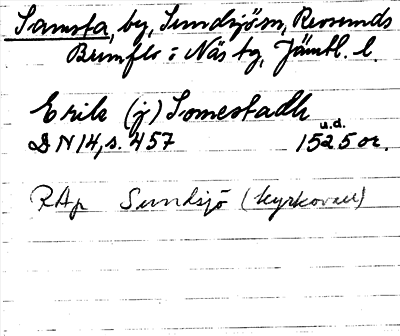 Samsta, by, Sundsjö sn, Revsunds
Brunflo o Näs tg, Jämtl. l.
Erik (j) Somestadh
u.d.
DN 14, s. 457 1525 or.
RAp Sundsjö (kyrkovall)